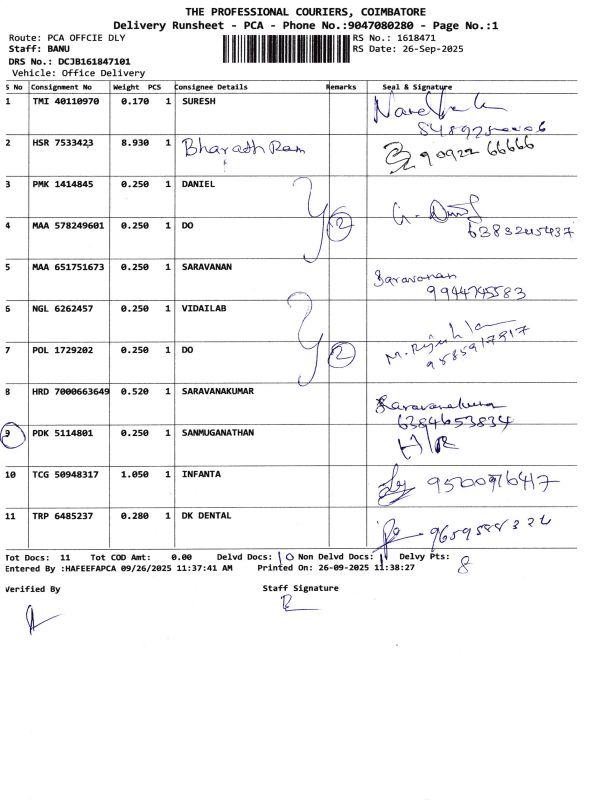 THE PROFESSIONAL COURIERS, COIMBATORE
Delivery Runsheet - PCA - Phone No.:9047080280 - Page No.:1
Route: PCA OFFCIE DLY RS No.: 1618471
Staff: BANU RS Date: 26-Sep-2025
DRS No.: DCJB161847101
Vehicle: Office Delivery
S No Consignment No Weight PCS Consignee Details Remarks Seal & Signature
1 TMI 40110970 0.170 1 SURESH
2 HSR 7533423 8.930 1 Bharath Ram 90922 66666
3 PMK 1414845 0.250 1 DANIEL
4 MAA 578249601 0.250 1 DO 2 6383245437
5 MAA 651751673 0.250 1 SARAVANAN Saravanan
9944745583
6 NGL 6262457 0.250 1 VIDAILAB
7 POL 1729202 0.250 1 DO 2
8 HRD 7000663649 0.520 1 SARAVANAKUMAR
6384653834
9 PDK 5114801 0.250 1 SANMUGANATHAN
10 TCG 50948317 1.050 1 INFANTA 9500976417
11 TRP 6485237 0.280 1 DK DENTAL
Tot Docs: 11 Tot COD Amt: 0.00 Delvd Docs: 10 Non Delvd Docs: 1 Delvy Pts: 8
Entered By :HAFEEFAPCA 09/26/2025 11:37:41 AM Printed On: 26-09-2025 11:38:27
Verified By Staff Signature